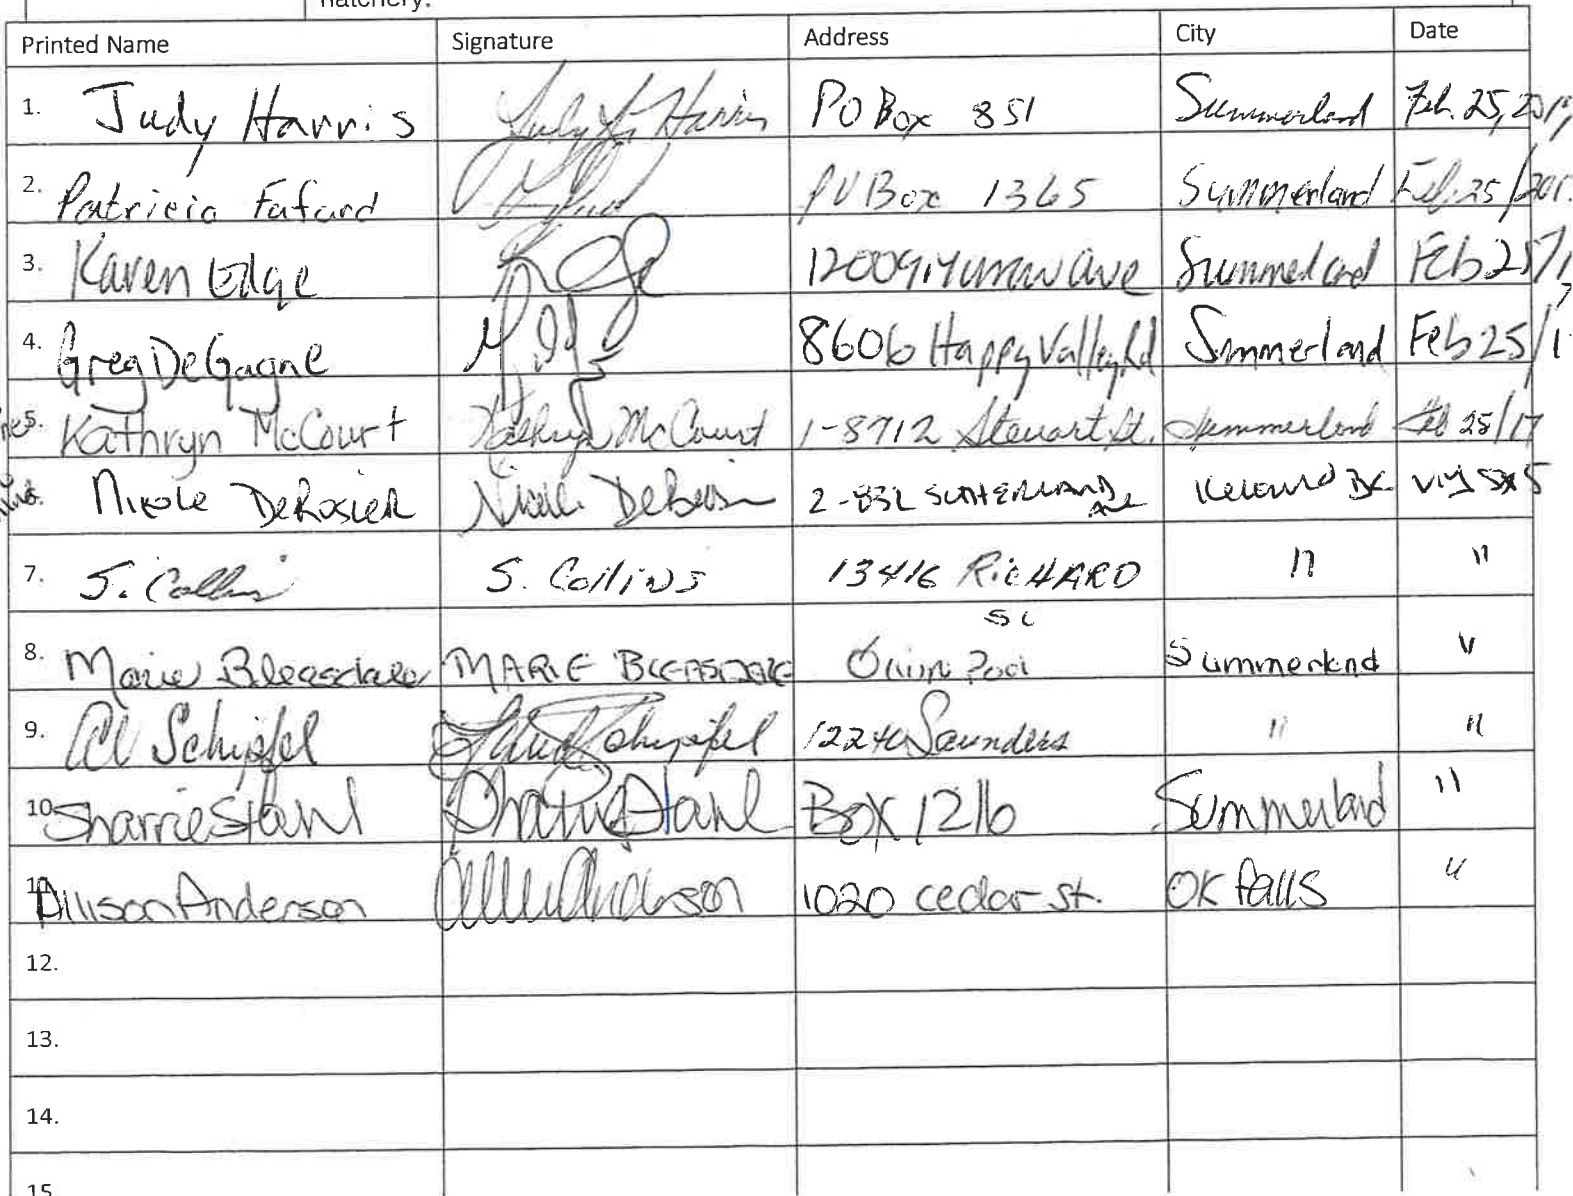 hatchery.
Printed Name Signature Address City Date
1. Judy Harris Judy L. Harris PO Box 851 Summerland Feb. 25, 2017
2. Patricia Fafard PO Box 1365 Summerland Feb. 25/201
3. Karen Edge 12009 Ave Summerland Feb 25/17
4. Greg DeGagne 8606 Happy Valley Rd Summerland Feb 25/1
5. Kathryn McCourt Kathryn McCourt 1-8712 Steuart St. Summerland Feb 25/17
Nicole DeRosier Nicole DeRosier 2-832 SUTHERLAND Ave Kelowna BC V1Y 5X5
7. S. Collins S. Collins 13416 RICHARD " "
8. Marie Bleasdale MARIE BLEASDALE Summerland "
9. Al Schipfel Schipfel 12240 Saunders " "
10. Sharrie Stahl Sharrie Stahl Box 1216 Summerland "
11. Allison Anderson Anderson 1020 cedar st. OK falls "
12.
13.
14.
15.